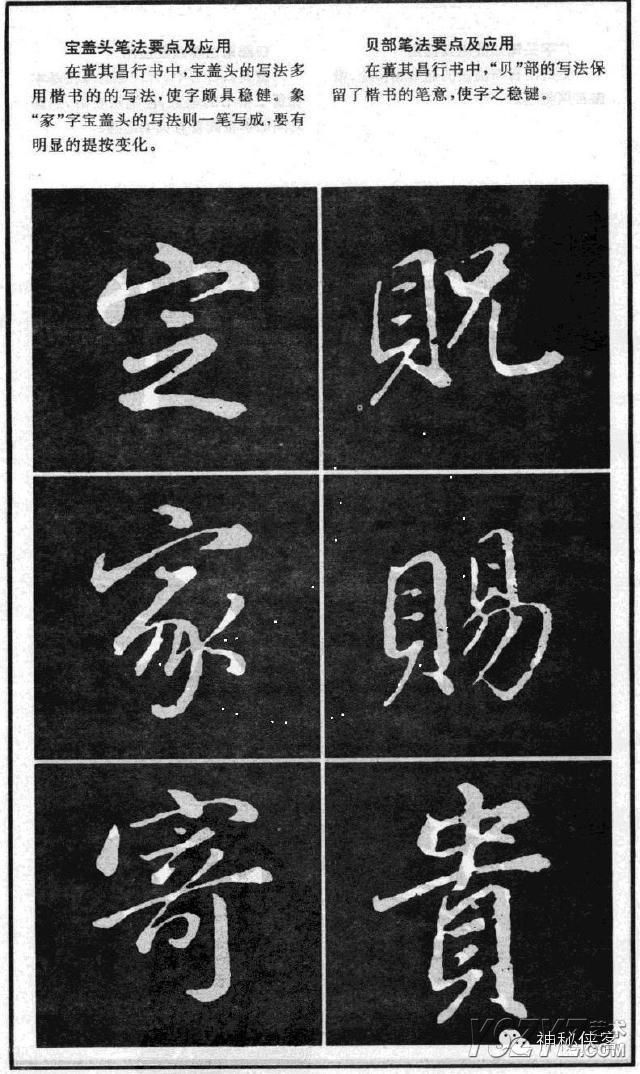 宝盖头笔法要点及应用
在董其昌行书中,宝盖头的写法多
用楷书的的写法,使字颇具稳健。象
“家”字宝盖头的写法则一笔写成,要有
明显的提按变化。
贝部笔法要点及应用
在董其昌行书中,“贝”部的写法保
留了楷书的笔意,使字之稳键。
定
貺
家
賜
寄
貴
神秘侠客